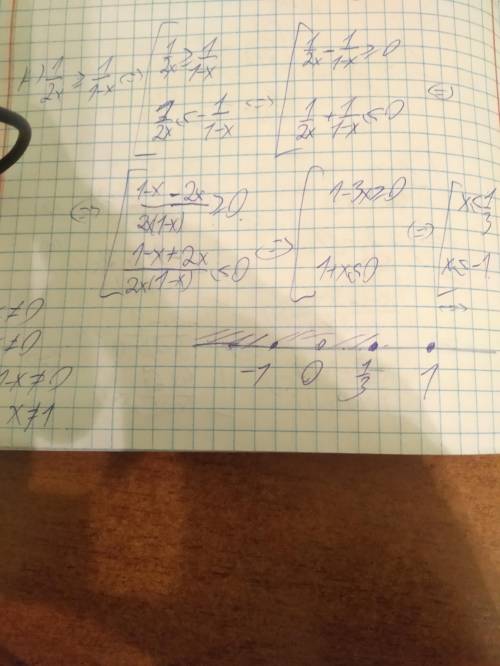 1/2x ≥ 1/1-x ⇔ [ 1/2x ≥ 1/1-x ; 1/2x ≤ -1/1-x ⇔ [ 1/2x - 1/1-x ≥ 0 ; 1/2x + 1/1-x ≤ 0 ⇔
⇔ [ 1-x-2x/2x(1-x) ≥ 0 ; 1-x+2x/2x(1-x) ≤ 0 ⇔ [ 1-3x≥0 ; 1+x≤0 ⇔ [ x≤1/3 ; x≤-1
≠0
≠0
1-x≠0
x≠1
-1 0 1/3 1